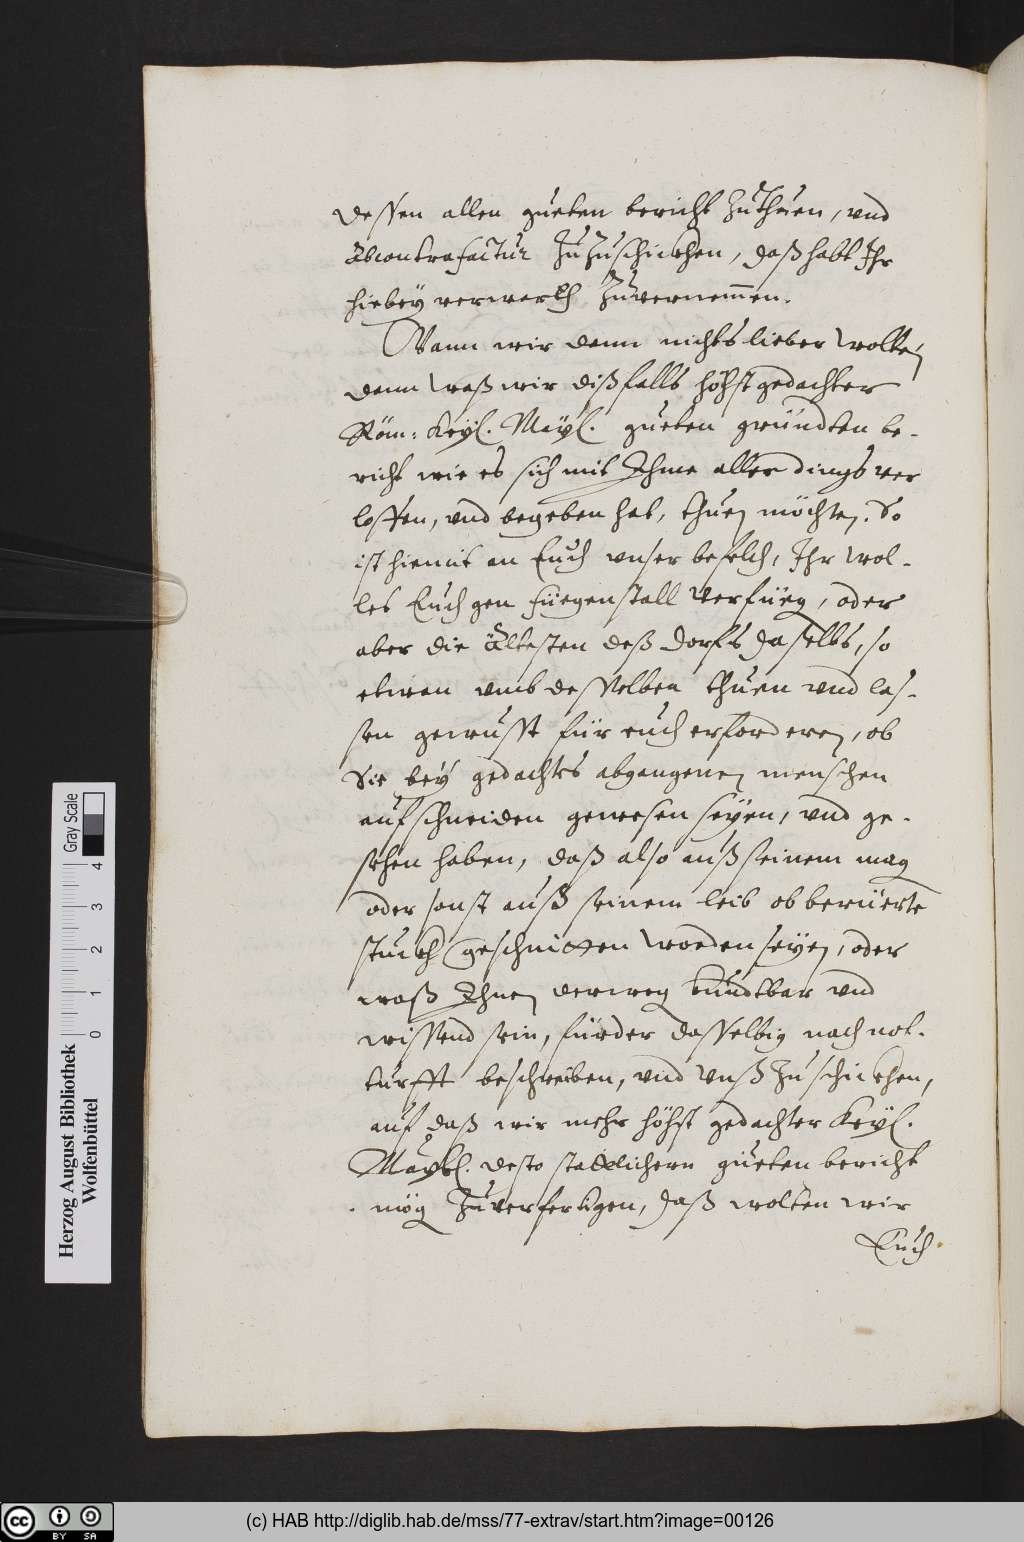 dessen allen gueten bericht zuthuen, vnd
abcontrafactur zuzuschickhen, daß habt Ihr
hiebey verwart zuvernemmen.
Wann wir dann nichts lieber wolten,
dann waß wir dißfalls höhstgedachter
Röm: Keyl. Mayl. gueten gründten be-
richt wie es sich mit Ihme aller dings ver
loffen, vnd begeben hat, thuen möchten. So
ist hiemit an Euch vnser befelch, Ihr wol-
let Euch gen füegenstall verfüeg, oder
aber die ältesten deß dorfs daselbs, so
etwan vmb desselben thuen vnd las-
sen gewusst für euch erforderen, ob
Sie bey gedachts abgangenen menschen
aufschneiden gewesen seyen, vnd ge-
sehen haben, daß also auß seinem mag
oder sonst auß seinem leib ob berüerte
stuckh geschnitten worden seyen, oder
waß Ihnen derweg kundtbar vnd
wissend sein, fürder dasselbig nach not-
turfft beschreiben, vnd vnß zuschickhen,
auf daß wir mehr höhst gedachter Keyl.
Maytl. desto stattlichern güeten bericht
mög zuverfertigen, daß wolten wir
Euch
Herzog August Bibliothek
Wolfenbüttel
Gray Scale
0 1 2 3 4
cc BY SA
(c) HAB http://diglib.hab.de/mss/77-extrav/start.htm?image=00126